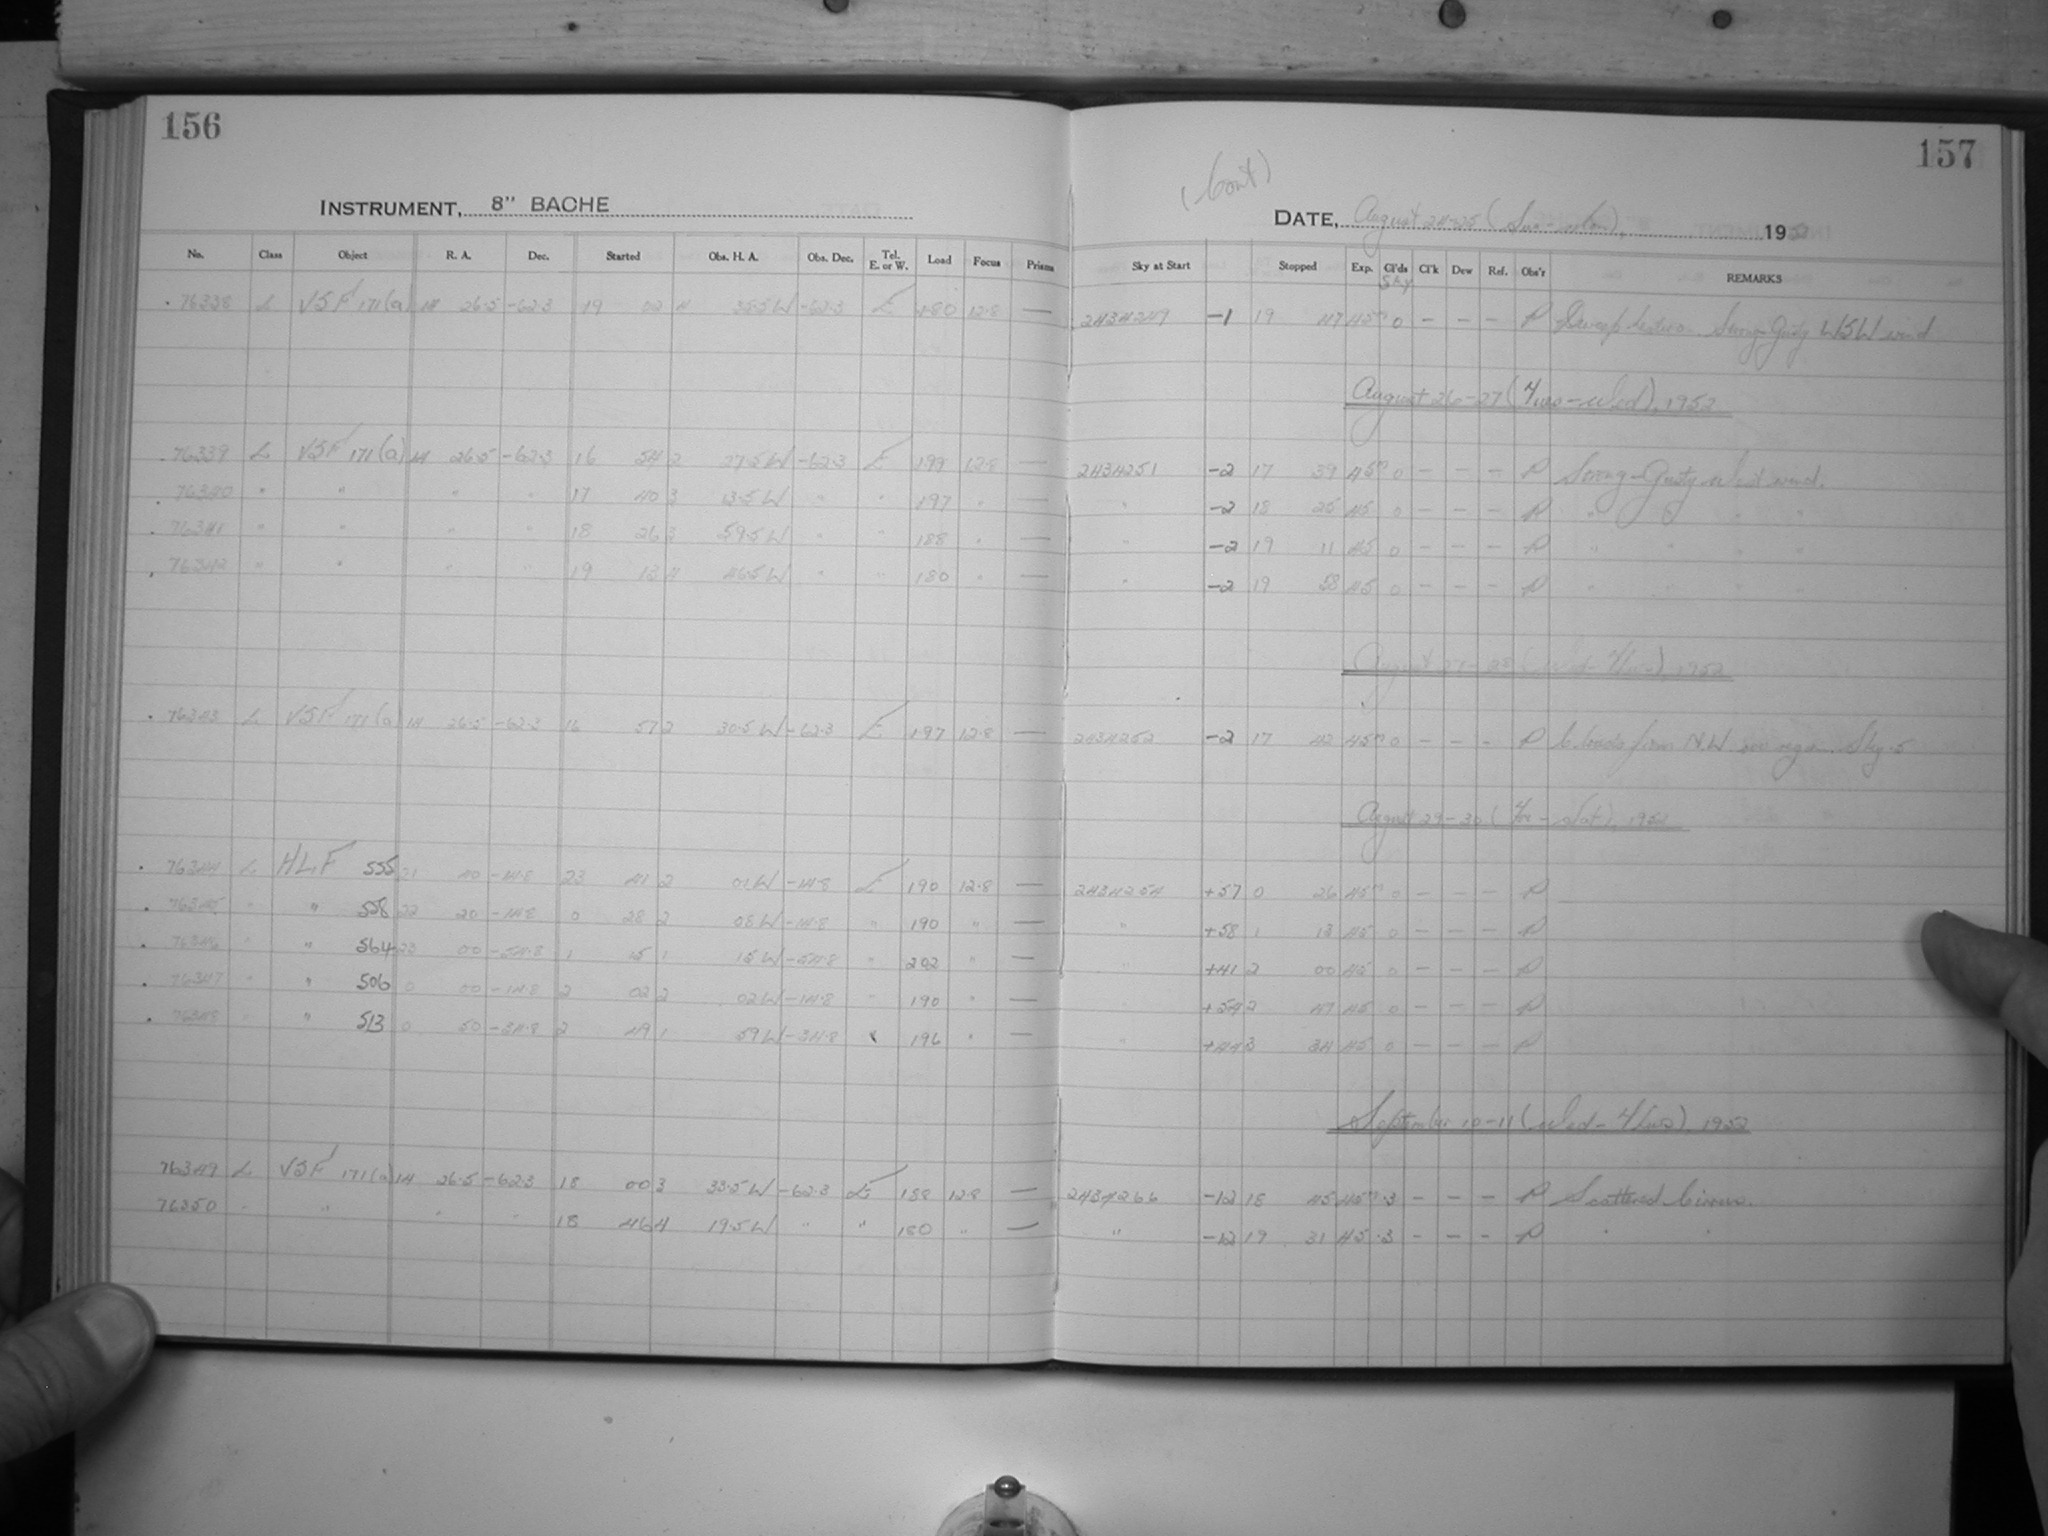 156
157
(Cont)
INSTRUMENT, 8" BACHE
DATE, August 24-25 (Sun-Mon), 1952
No. Class Object R. A. Dec. Started Obs. H. A. Obs. Dec. Tel. E. or W. Load Focus Prisms Sky at Start Stopped Exp. Cl'ds Sky Cl'k Dew Ref. Obs'r REMARKS
76338 L VSF 171(a) 14 26.5 -62.3 19 02 4 35.5W -62.3 E 180 12.8 — 2434249 -1 19 47 45m 0 - - - P Strong-Gusty WSW wind
August 26-27 (Tues-Wed), 1952
76339 L VSF 171(a) 14 26.5 -62.3 16 54 2 27.5W -62.3 E 199 12.8 — 2434251 -2 17 39 45m 0 - - - P Strong-Gusty West wind.
76340 " " " " 17 40 3 13.5W " " 197 " — " -2 18 25 45 0 - - - P " " " "
76341 " " " " 18 26 3 59.5W " " 188 " — " -2 19 11 45 0 - - - P " " " "
76342 " " " " 19 13 4 46.5W " " 180 " — " -2 19 58 45 0 - - - P " " " "
August 27-28 (Wed-Thurs), 1952
76343 L VSF 171(a) 14 26.5 -62.3 16 57 2 30.5W -62.3 E 197 12.8 — 2434252 -2 17 42 45m 0 - - - P Clouds from N.W. Sky .5
August 29-30 (Fri-Sat), 1952
76344 L HLF 555 21 40 -14.8 23 41 2 01W -14.8 E 190 12.8 — 2434254 +57 0 26 45m 0 - - - P
76345 " " 558 22 20 -14.8 0 28 2 08W -14.8 " 190 " — " +58 1 13 45 0 - - - P
76346 " " 564 23 00 -54.8 1 15 1 15W -54.8 " 202 " — " +41 2 00 45 0 - - - P
76347 " " 506 0 00 -14.8 2 02 2 02W -14.8 " 190 " — +54 2 47 45 0 - - - P
76348 " " 513 0 50 -34.8 2 49 1 59W -34.8 " 196 " — " +44 3 34 45 0 - - - P
September 10-11 (Wed-Thurs), 1952
76349 L VSF 171(a) 14 26.5 -62.3 18 00 3 33.5W -62.3 E 188 12.8 — 2434266 -12 18 45 45m .3 - - - P Scattered Cirrus.
76350 " " " " 18 46 4 19.5W " " 180 " — " -12 19 31 45 .3 - - - P " "